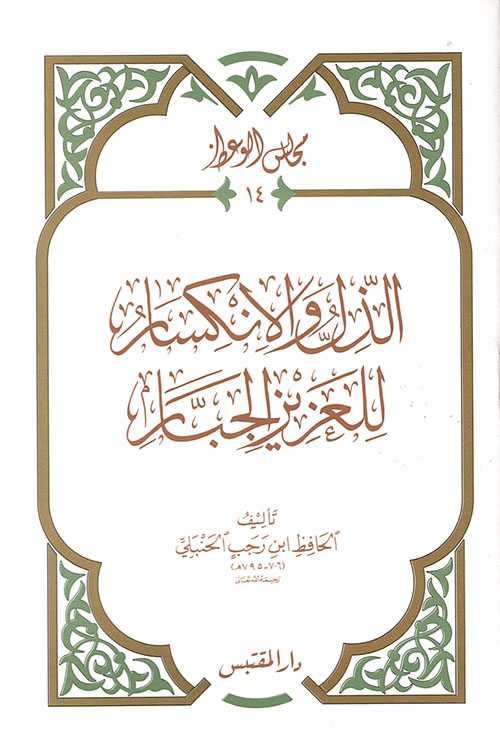 مجالس الوعظ
١٤
الذِّلُّ وَالِانْكِسَارُ
لِلعَزِيزِ الجَبَّارِ
تَأليفُ
الحَافِظِ ابنِ رَجَبٍ الحَنْبَليِّ
(٧٠٦-٧٩٥هـ)
رحمهُ الله تعالى
دار المقتبس